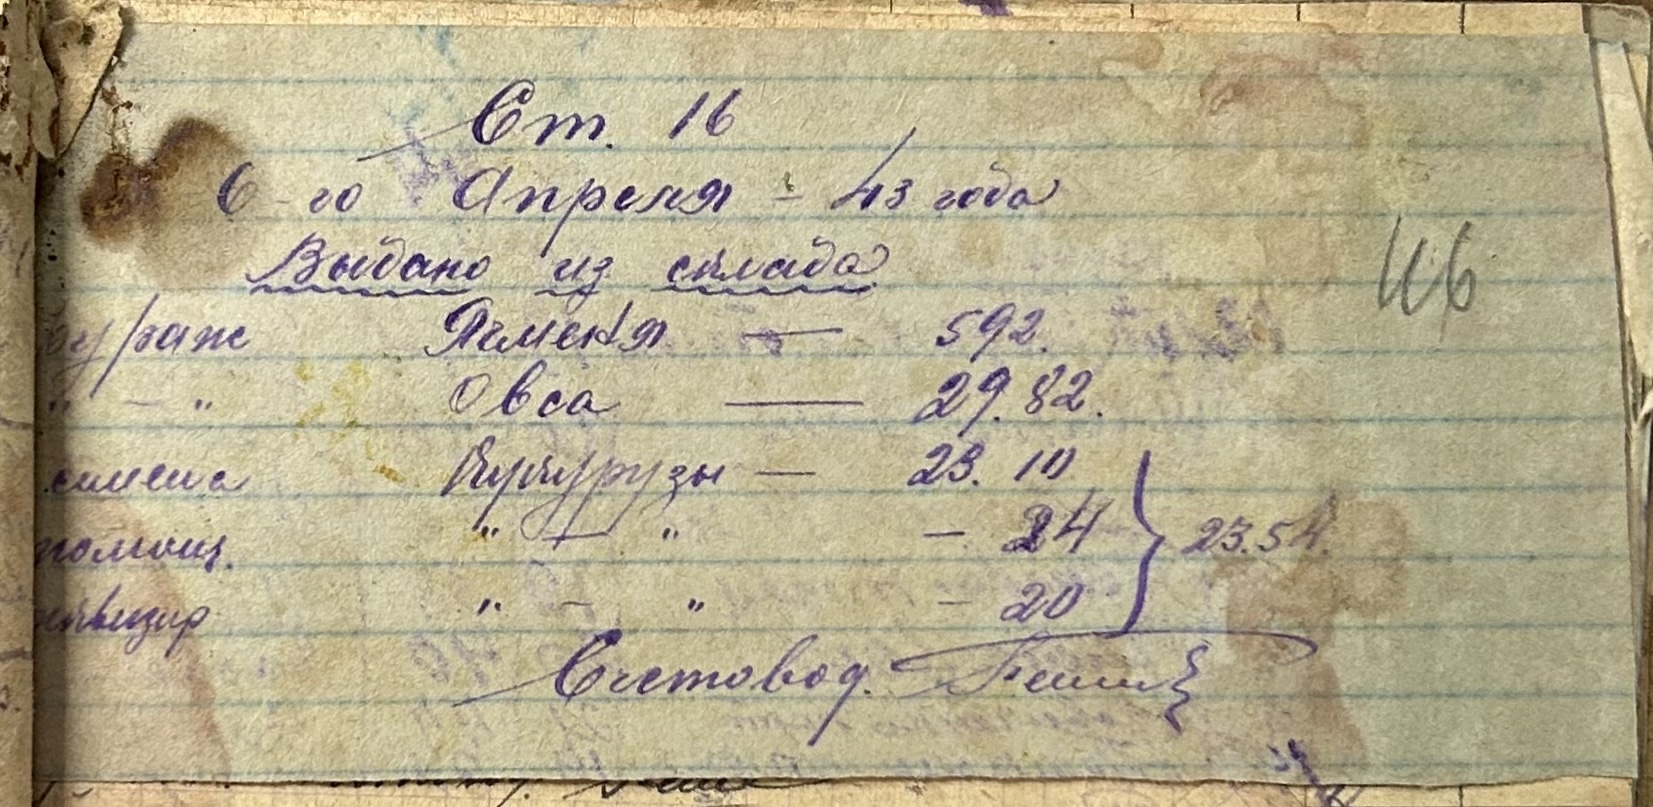 Ст. 16
6-го Апреля - 43 года
116
Выдано из склада
фураж Ячменя — 592.
" — " Овса — 29.82.
семена Кукурузы — 23.10
помощ. " — " — 24 } 23.54.
" — " — 20
Счетовод.